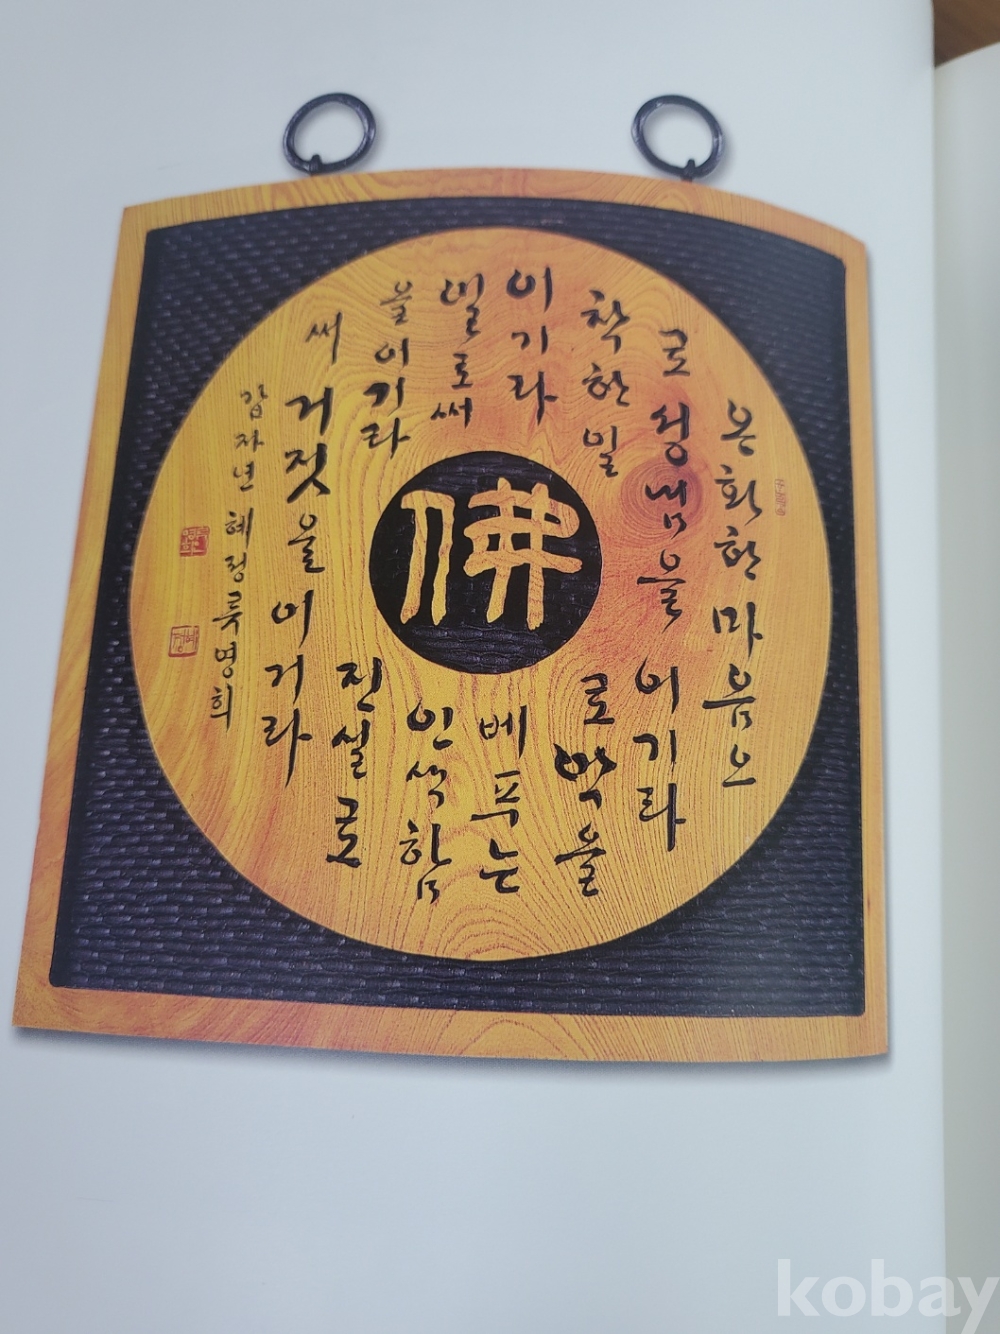 온화한 마음으
로 성냄을 이기라
착한 일로 악을
이기라 베푸는
일로써 인색함
을 이기라 진실로
써 거짓을 이기라
갑자년 혜정 류영희
佛
kobay